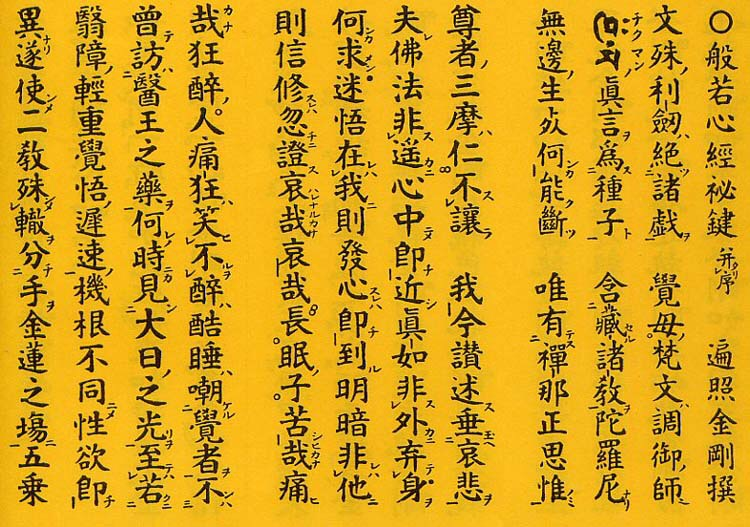 〇般若心經祕鍵 并序 遍照金剛撰
文殊利劒絶諸戯 覺母梵文調御師
眞言爲種子 含藏諸教陀羅尼
無邊生死何能斷 唯有禪那正思惟
尊者三摩仁不讓 我今讃述垂哀悲
夫佛法非遥心中即近眞如非外弃身
何求迷悟在我則發心即到明暗非他
則信修忽證哀哉哀哉長眠子苦哉痛
哉狂醉人痛狂笑不醉酷睡嘲覺者不
曾訪醫王之藥何時見大日之光至若
翳障輕重覺悟遲速機根不同性欲即
異遂使二教殊轍分手金蓮之場五乘